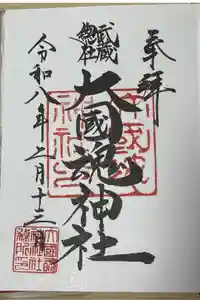 奉拝
武蔵
總社
大國魂神社
令和八年二月十三日